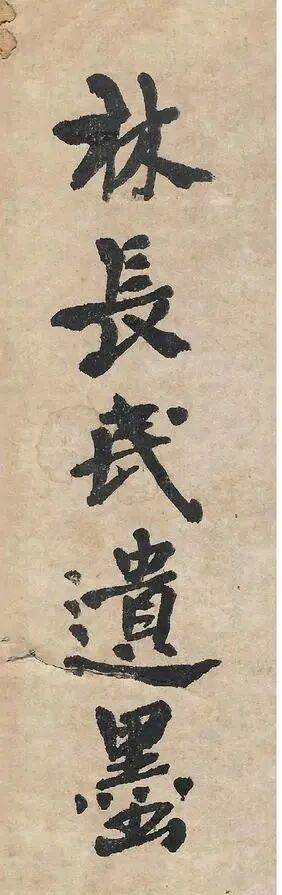 林長民遺墨